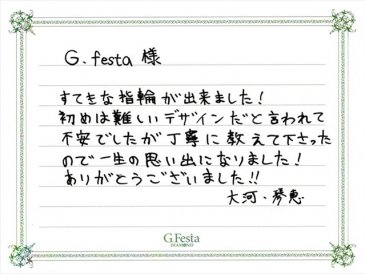 G.festa 様
すてきな指輪が出来ました!
初めは難しいデザインだと言われて
不安でしたが丁寧に教えて下さった
ので一生の思い出になりました!
ありがとうございました!!
大河・琴恵
G.Festa
DIAMOND